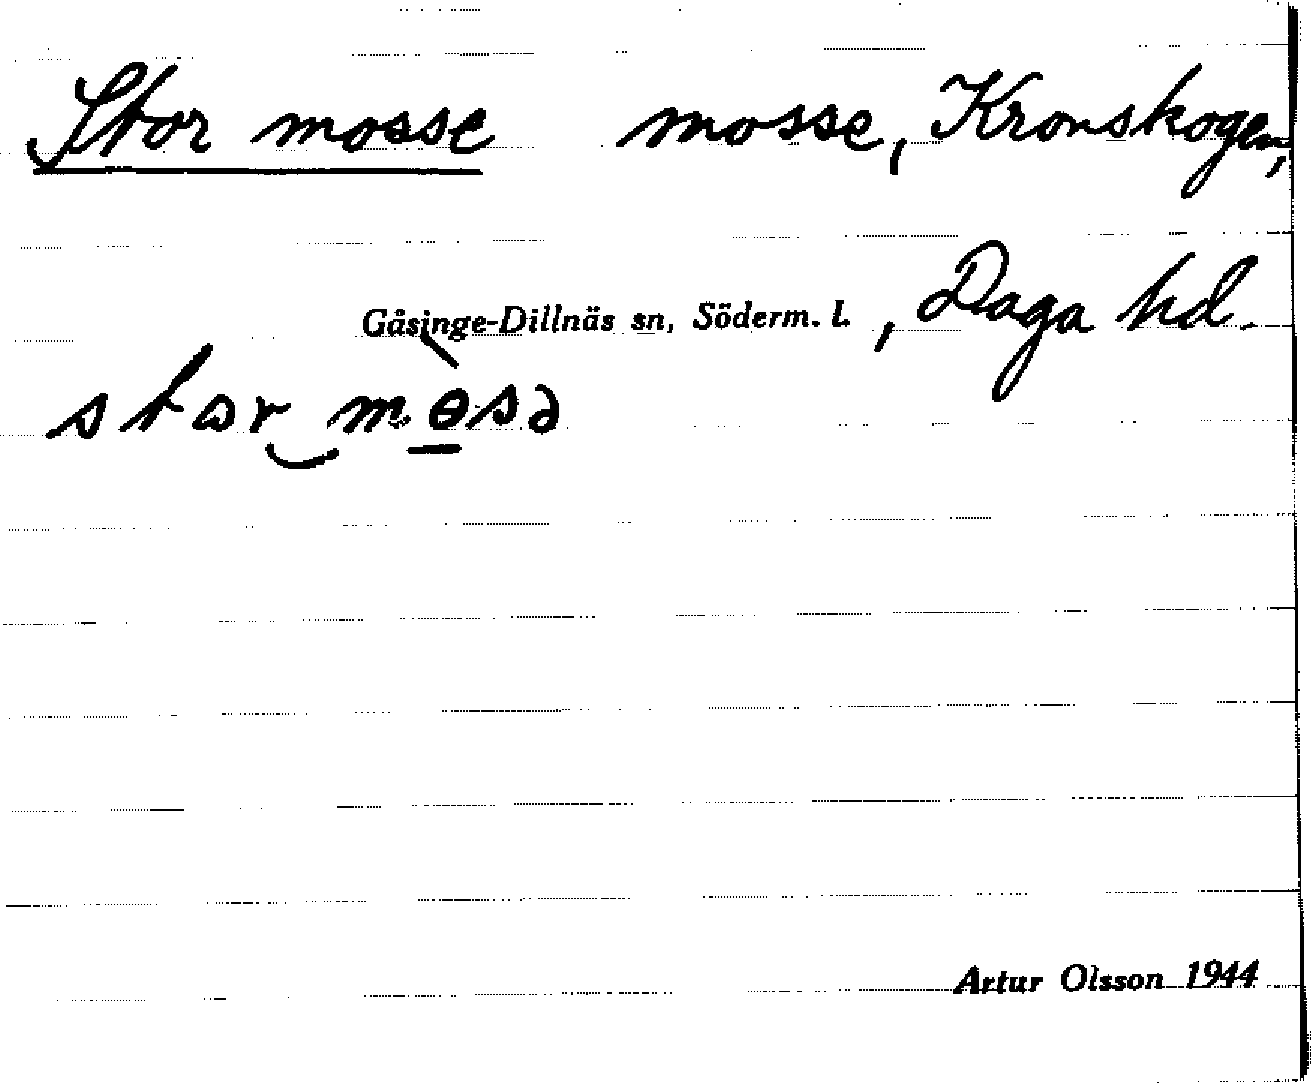 Stor mosse mosse, Kronskogen,
Gåsinge-Dillnäs sn, Söderm. l., Daga hd.
Artur Olsson 1944